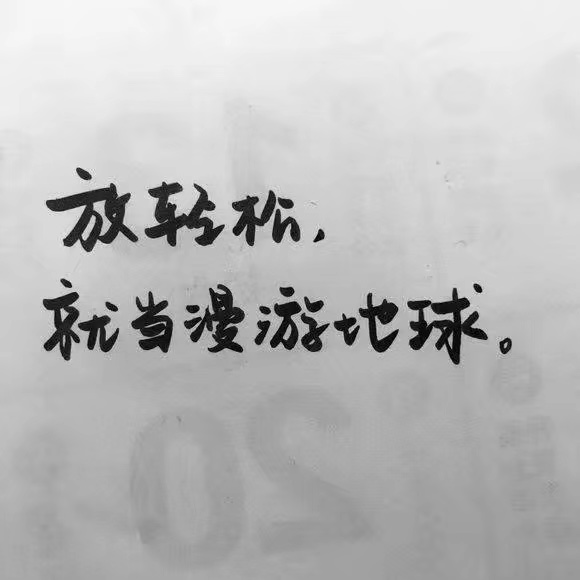 放轻松，
就当漫游地球。